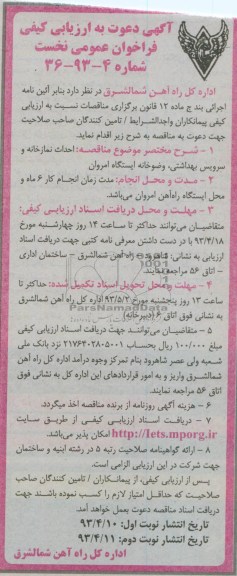 آگهی دعوت به ارزیابی کیفی
فراخوان عمومی نخست
شماره ۴-۹۳-۳۶
اداره کل راه آهن شمالشرق در نظر دارد بنابر آئین نامه
اجرائی بند ج ماده ۱۲ قانون برگزاری مناقصات نسبت به ارزیابی
کیفی پیمانکاران واجدالشرایط / تامین کنندگان صاحب صلاحیت
جهت دعوت به مناقصه به شرح زیر اقدام نماید.
۱ - شرح مختصر موضوع مناقصه: احداث نمازخانه و
سرویس بهداشتی، وضوخانه ایستگاه امروان
۲ - مدت و محل انجام: مدت زمان انجام کار ۶ ماه و
محل ایستگاه راه‌آهن امروان می‌باشد.
۳ - مهلت و محل دریافت اسناد ارزیابی کیفی:
متقاضیان می‌توانند حداکثر تا ساعت ۱۴ روز چهارشنبه مورخ
۹۳/۴/۱۸ با در دست داشتن معرفی نامه کتبی جهت دریافت اسناد
ارزیابی به نشانی: شاهرود راه آهن شمالشرق - ساختمان اداری
- اتاق ۵۶ مراجعه نمایند.
۴ - مهلت و محل تحویل اسناد تکمیل شده: حداکثر تا
ساعت ۱۳ روز پنجشنبه مورخ ۹۳/۵/۲ اداره کل راه آهن شمالشرق
به نشانی فوق اتاق ۶ (دبیرخانه)
۵ - متقاضیان می‌توانند جهت دریافت اسناد ارزیابی کیفی
مبلغ ۱۰۰/۰۰۰ ریال بحساب ۲۱۷۶۴۰۲۸۰۵۰۰۱ نزد بانک ملی
شعبه ولی عصر شاهرود بنام تمرکز وجوه درآمد اداره کل راه آهن
شمالشرق واریز و به امور قراردادهای این اداره کل به نشانی فوق
اتاق ۵۶ مراجعه نمایند.
۶ - هزینه آگهی روزنامه از برنده مناقصه اخذ میگردد.
۷ - دریافت اسناد ارزیابی کیفی از طریق سایت
http://Iets.mporg.ir امکان پذیر می‌باشد.
۸ - ارائه گواهینامه صلاحیت رتبه ۵ در رشته ابنیه و ساختمان
جهت شرکت در این ارزیابی الزامی است.
پس از ارزیابی کیفی، از پیمانکاران / تامین کنندگان صاحب
صلاحیت که حداقل امتیاز لازم را کسب نموده باشند جهت
دریافت اسناد مناقصه دعوت بعمل خواهد آمد.
تاریخ انتشار نوبت اول: ۹۳/۴/۱۰
تاریخ انتشار نوبت دوم: ۹۳/۴/۱۱
اداره کل راه آهن شمالشرق